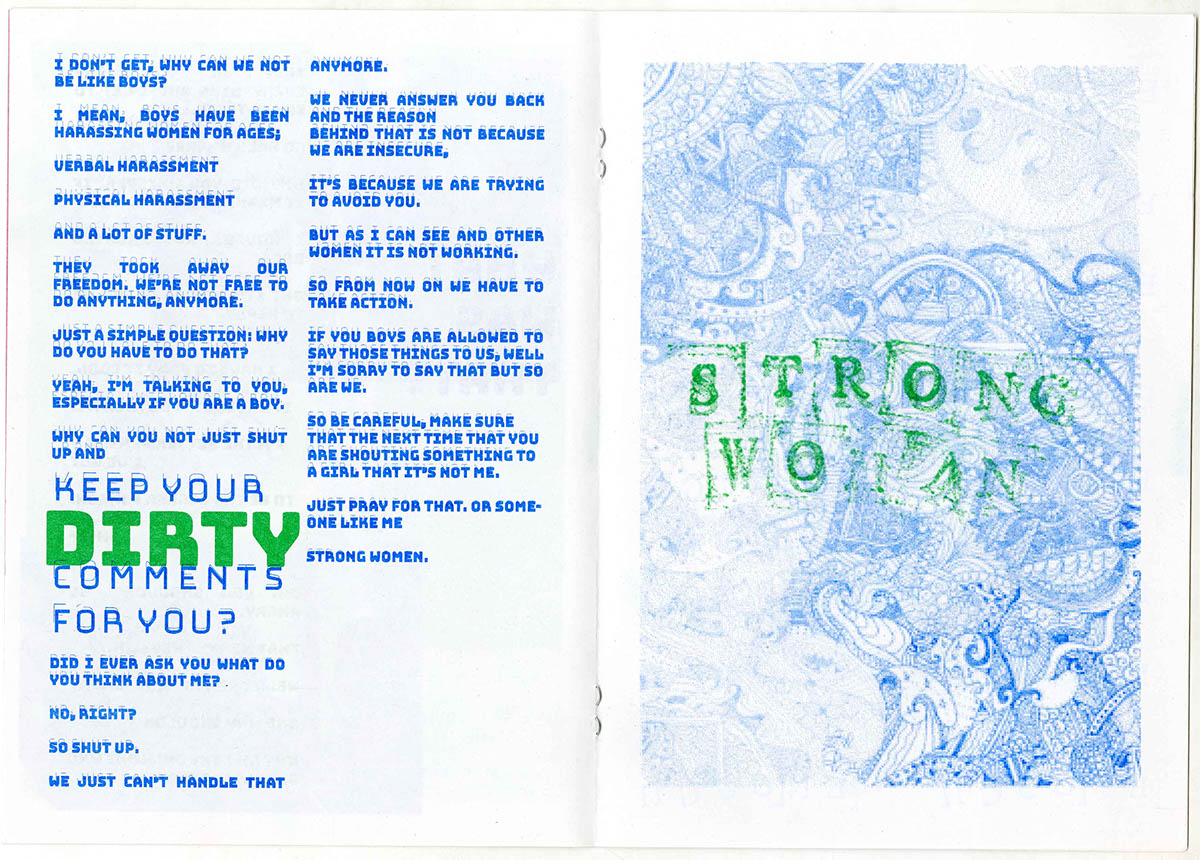 I DON'T GET, WHY CAN WE NOT
BE LIKE BOYS?
I MEAN, BOYS HAVE BEEN
HARASSING WOMEN FOR AGES;
VERBAL HARASSMENT
PHYSICAL HARASSMENT
AND A LOT OF STUFF.
THEY TOOK AWAY OUR
FREEDOM. WE'RE NOT FREE TO
DO ANYTHING, ANYMORE.
JUST A SIMPLE QUESTION: WHY
DO YOU HAVE TO DO THAT?
YEAH, I'M TALKING TO YOU,
ESPECIALLY IF YOU ARE A BOY.
WHY CAN YOU NOT JUST SHUT
UP AND
KEEP YOUR
DIRTY
COMMENTS
FOR YOU?
DID I EVER ASK YOU WHAT DO
YOU THINK ABOUT ME?
NO, RIGHT?
SO SHUT UP.
WE JUST CAN'T HANDLE THAT
ANYMORE.
WE NEVER ANSWER YOU BACK
AND THE REASON
BEHIND THAT IS NOT BECAUSE
WE ARE INSECURE,
IT'S BECAUSE WE ARE TRYING
TO AVOID YOU.
BUT AS I CAN SEE AND OTHER
WOMEN IT IS NOT WORKING.
SO FROM NOW ON WE HAVE TO
TAKE ACTION.
IF YOU BOYS ARE ALLOWED TO
SAY THOSE THINGS TO US, WELL
I'M SORRY TO SAY THAT BUT SO
ARE WE.
SO BE CAREFUL, MAKE SURE
THAT THE NEXT TIME THAT YOU
ARE SHOUTING SOMETHING TO
A GIRL THAT IT'S NOT ME.
JUST PRAY FOR THAT. OR SOME-
ONE LIKE ME
STRONG WOMEN.
STRONG
WOMAN